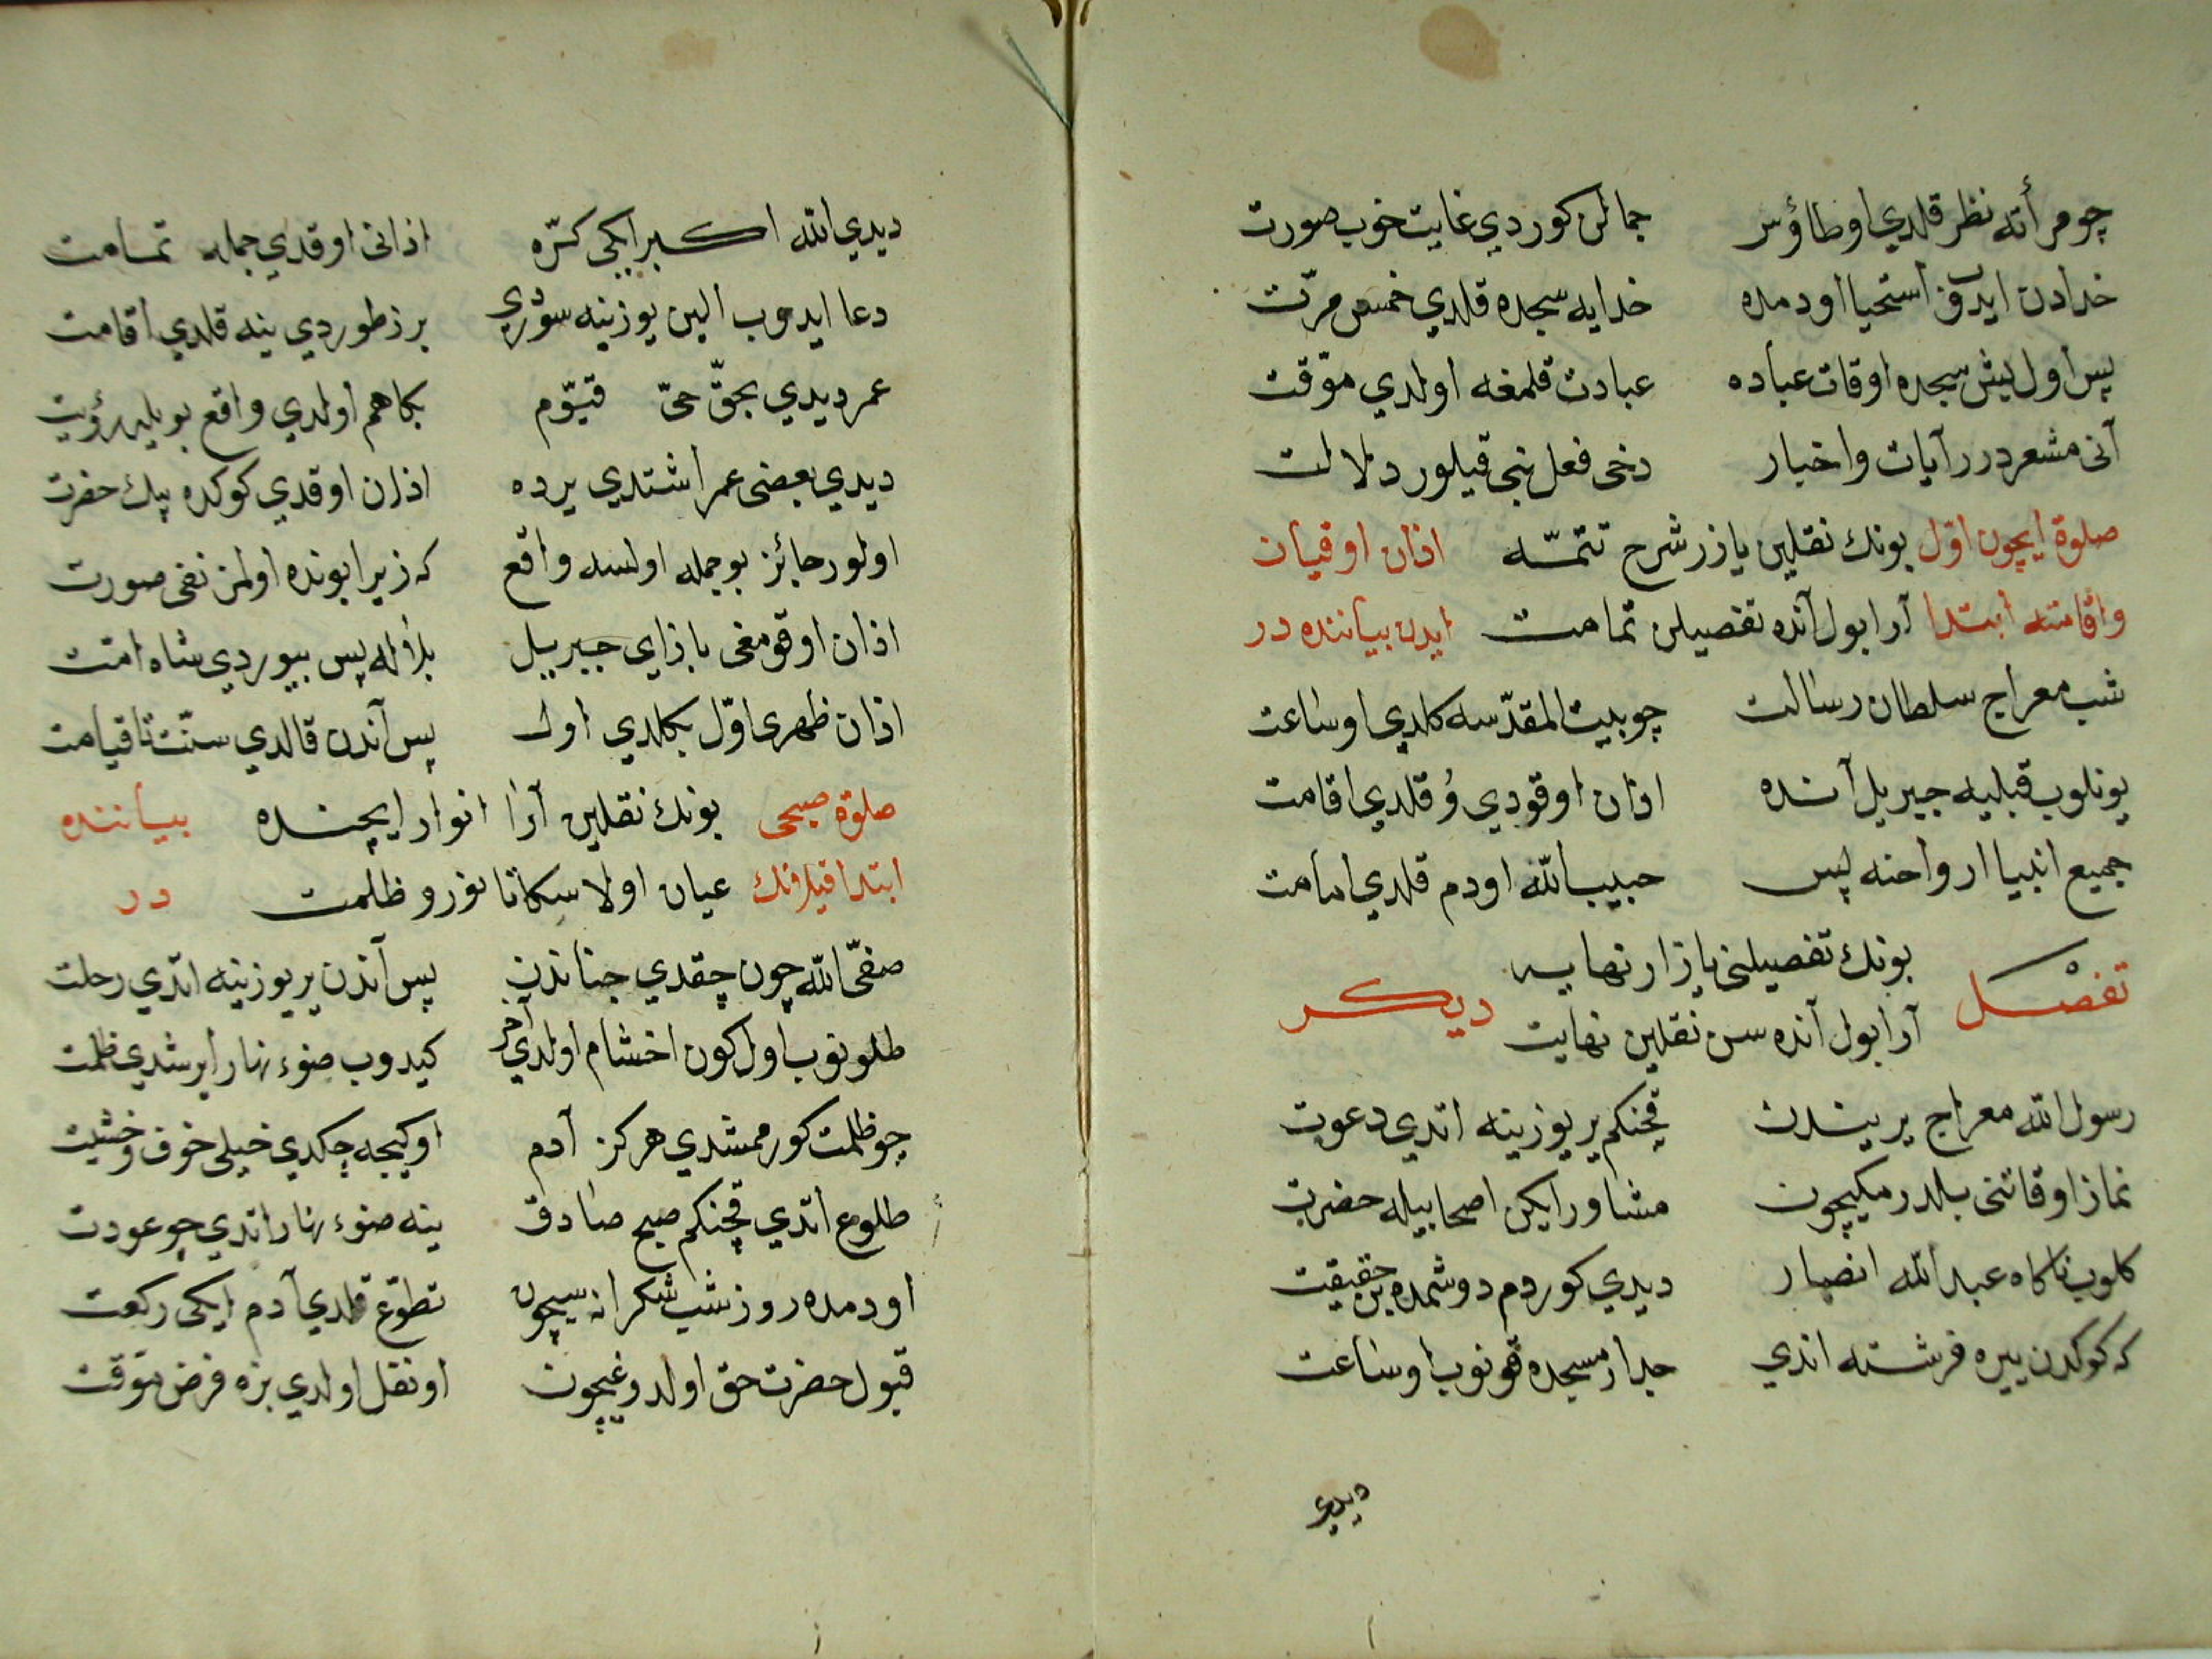 چو مرأته نظر قلدي او طاؤس جمالن كوردي غايت خوب صورت
خدادن ايدوب استحيا اودمده خدايه سجده قلدي خمس مرّت
پس اول بيش سجده اوقات عباده عبادت قلمغه اولدي موّقت
آنى مشعردر آيات واخبار دخى فعل نبى قيلور دلالت
صلوة ايچون اوّل بونك نقلين يازر شرح تتمّـه اذان اوقيان
واقامته ابتدا آرا بول آنده تفصيلن تمامت ايدن بياننده در
شب معراج سلطان رسالت چو بيت المقدّسه كلدي او ساعت
يونلوب قبليه جبريل آنده اذان اوقودي وُ قلدي اقامت
جميع انبيا ارواحنه پس حبيب الله اودم قلدي امامت
تفصْـل بونك تفصيلنى يازار نهايه ديكـر
آرا بول آنده سن نقلين نهايت
رسول الله معراج يريندن قچنكم ير يوزينه اتدي دعوت
نماز اوقاتنى بلدرمكيچون مشاور ايكن اصحابيله حضرت
كلوب ناكاه عبد الله انصار ديدي كوردم دوشمده بن حقيقت
كه كوكدن ييره فرشته اندي جدار مسجده قونوب او ساعت
ديدي
ديدي الله اكـبر ايكى كرّه اذانى اوقدي جمله تمـامت
دعا ايدوب الين يوزينه سوردي برز طوردي ينه قلدي اقامت
عمر ديدي بحقّ حىّ قيّوم بكا هم اولدي واقع بويله رؤيت
ديدي بعضى عمر اشتدي يرده اذان اوقدي كوكده پيك حضرت
اولور جائز بو جمله اولسه واقع كه زيرا بونده اولمز نفى صورت
اذان اوقومغى باذاي جبريل بلاله پس بيوردي شاه امت
اذان ظهرى اوّل بكلدي اول پس آندن قالدي سنّت تا قيامت
صلوة صبحى بونك نقلين آرا انوار ايچنـده بيـاننده
ابتدا قيلانك عيان اولا سكا تا نور و ظلمت در
صفىّ الله چون چقدي جناندن پس آندن ير يوزينه اتدي رحلت
طلونوب اول كون اخشام اولدي آخر كيدوب ضوء نهار ايرشدي ظلمت
چو ظلمت كورممشدي هركز آدم او كيجه چكدي خيلى خوف و خشيت
طلوع اتدي قچنكم صبح صادق ينه ضوء نهار اتدي چو عودت
اودمده روز شب شكرانه سيچون تطوّع قلدي آدم ايكى ركعت
قبول حضرت حق اولدوغيچون او نفل اولدي بزه فرض موّقت